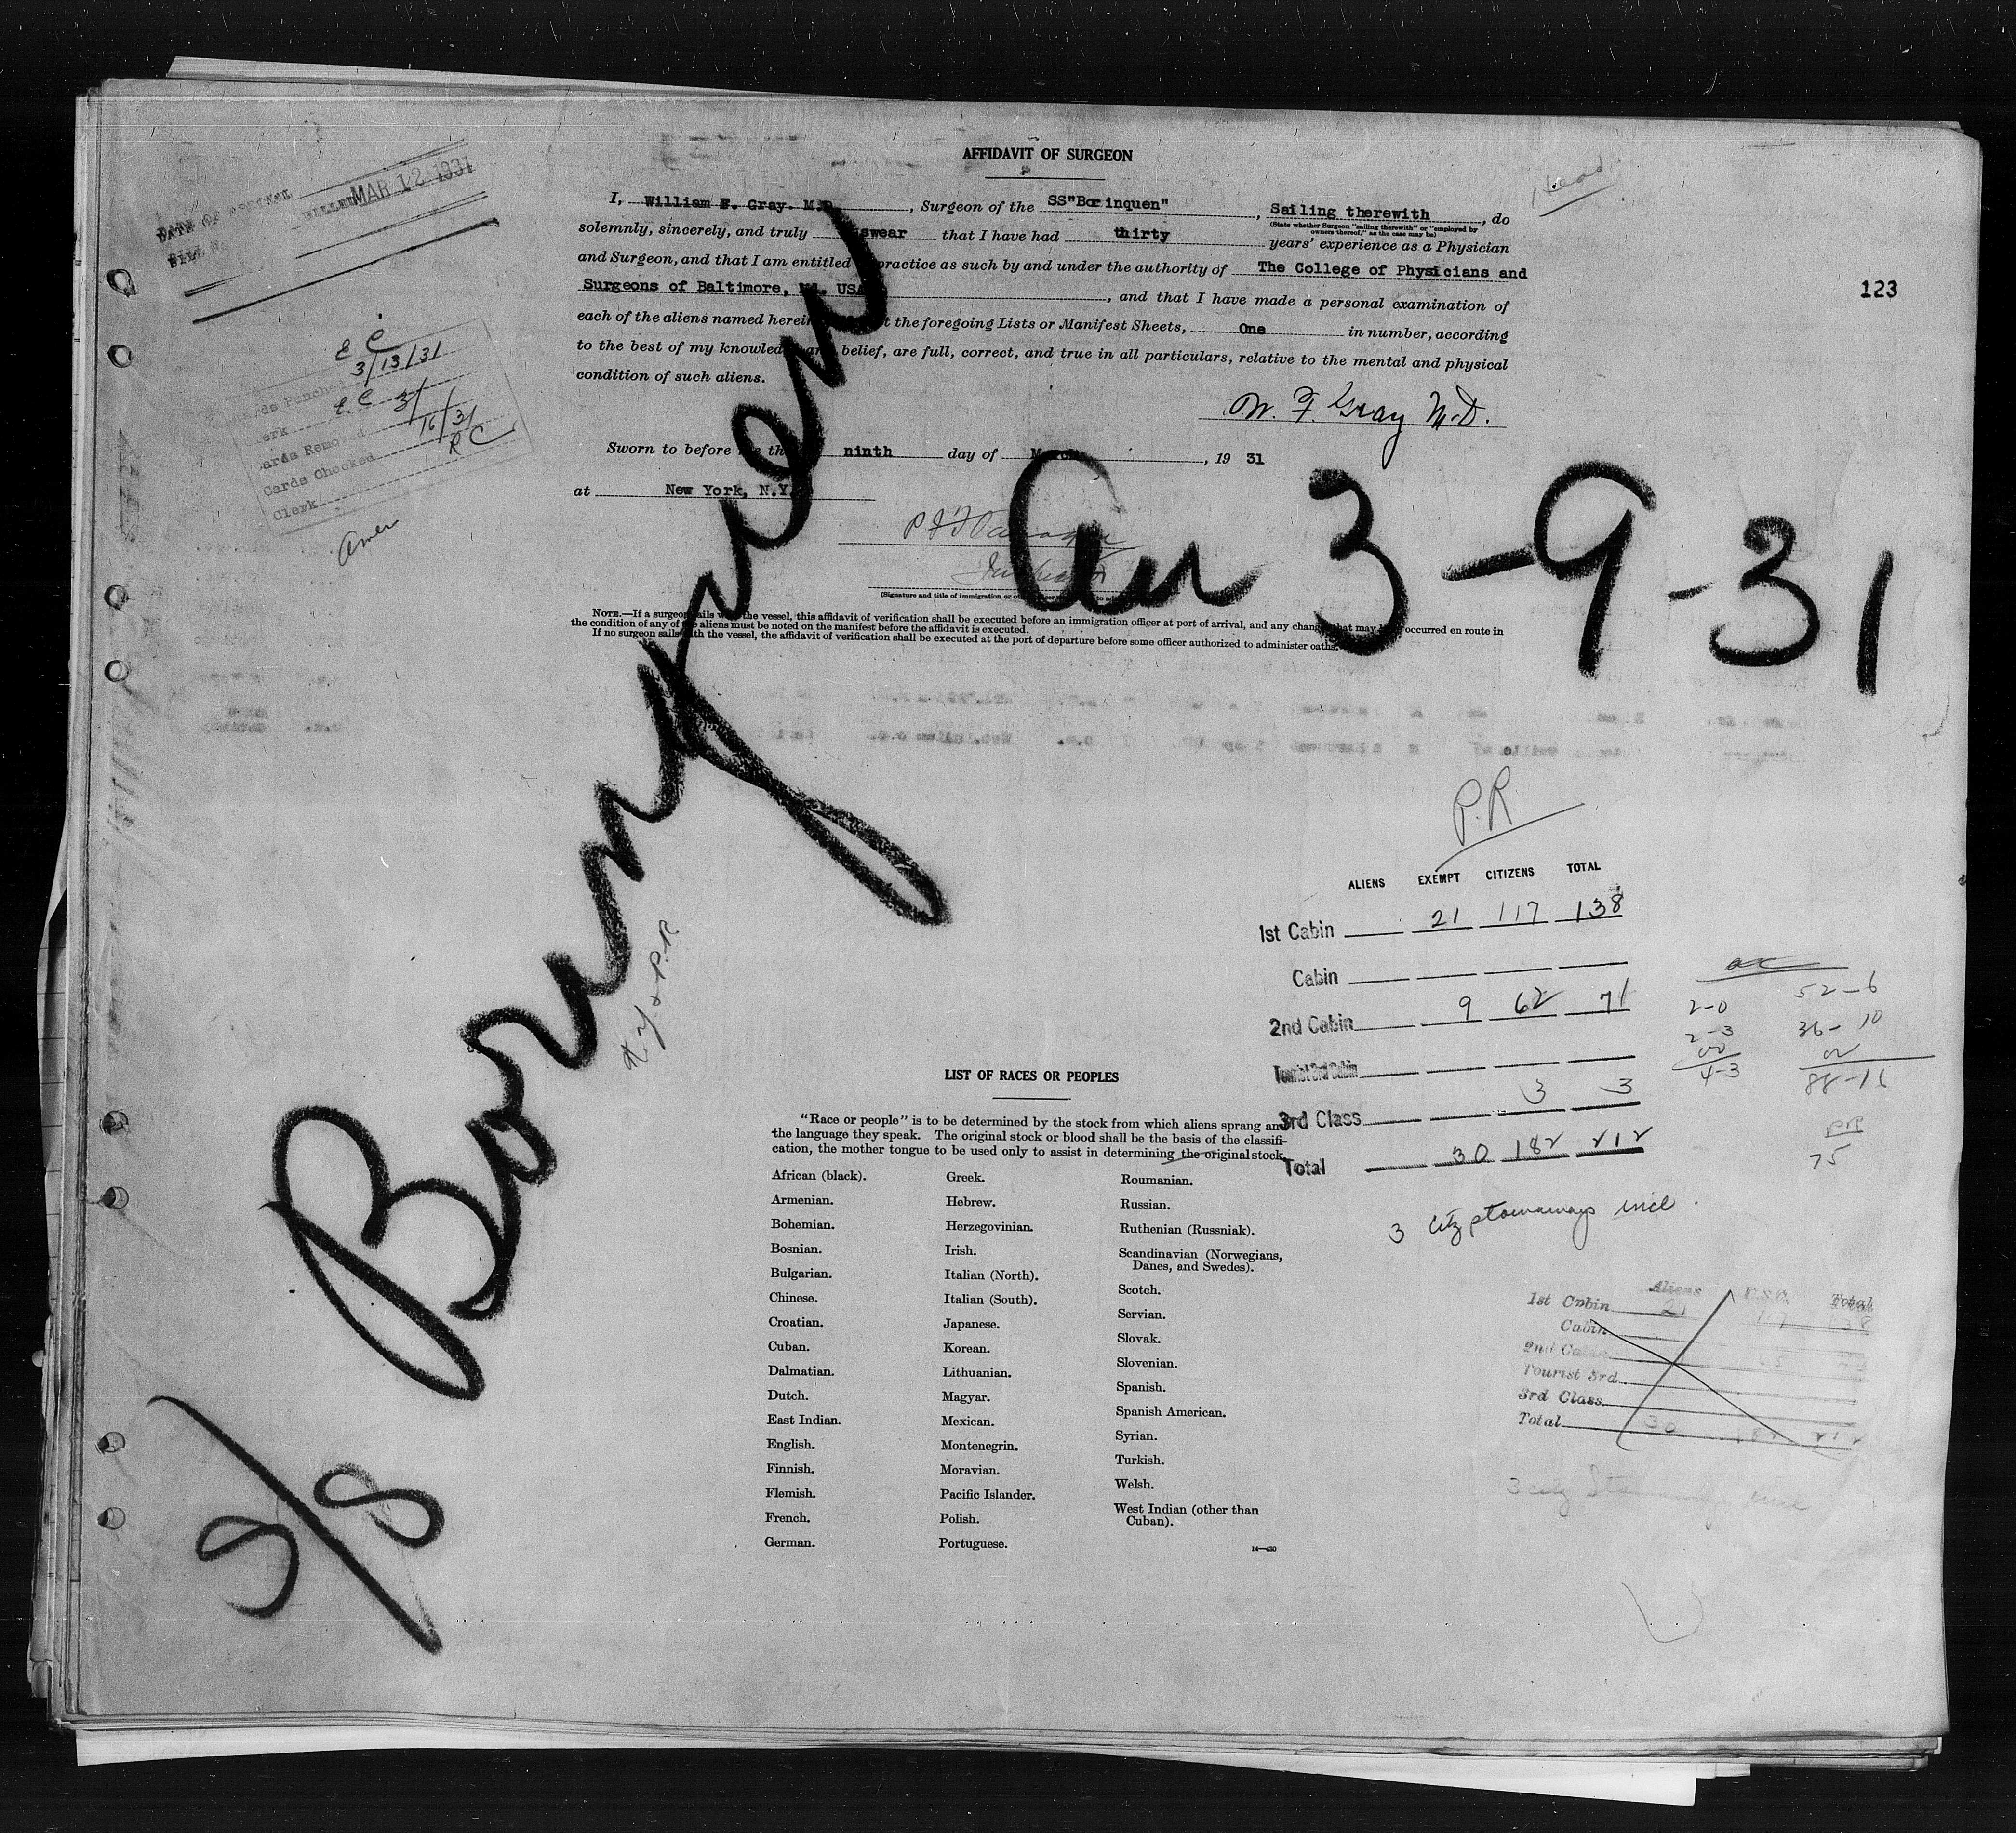 AFFIDAVIT OF SURGEON
I, William F. Gray. M.D., Surgeon of the SS"Borinquen", Sailing therewith, do
(State whether Surgeon "sailing therewith" or "employed by owners thereof," as the case may be)
solemnly, sincerely, and truly swear that I have had thirty years' experience as a Physician
and Surgeon, and that I am entitled practice as such by and under the authority of The College of Physicians and
Surgeons of Baltimore, USA, and that I have made a personal examination of
each of the aliens named herein the foregoing Lists or Manifest Sheets, One in number, according
to the best of my knowled and belief, are full, correct, and true in all particulars, relative to the mental and physical
condition of such aliens.
W. F. Gray M.D.
Sworn to before me this ninth day of March, 19 31
at New York, N.Y.
(Signature and title of immigration or
NOTE.—If a surgeon sails with the vessel, this affidavit of verification shall be executed before an immigration officer at port of arrival, and any change that may occurred en route in
the condition of any of the aliens must be noted on the manifest before the affidavit is executed.
If no surgeon sails with the vessel, the affidavit of verification shall be executed at the port of departure before some officer authorized to administer oaths.
BILLED MAR 12 1931
123
E C
3/13/31
Cards Punched
Clerk E.C 3/16/31
Cards Removed
Cards Checked R C
Clerk
Amer
Borinquen
Arr 3-9-31
9/8
P.R
ALIENS EXEMPT CITIZENS TOTAL
1st Cabin 21 117 138
Cabin
2nd Cabin 9 62 71
Tourist 3rd Cabin
3rd Class 3 3
Total 30 182 212
3 Citz stowaways incl.
2-0 52-6
2-3 36-10
4-3 88-16
PR
75
Aliens U.S.C. Total
1st Cabin 21 117 138
Cabin
2nd Cabin
Tourist 3rd
3rd Class
Total 30 182 212
LIST OF RACES OR PEOPLES
"Race or people" is to be determined by the stock from which aliens sprang and
the language they speak. The original stock or blood shall be the basis of the classifi-
cation, the mother tongue to be used only to assist in determining the original stock.
African (black).
Armenian.
Bohemian.
Bosnian.
Bulgarian.
Chinese.
Croatian.
Cuban.
Dalmatian.
Dutch.
East Indian.
English.
Finnish.
Flemish.
French.
German.
Greek.
Hebrew.
Herzegovinian.
Irish.
Italian (North).
Italian (South).
Japanese.
Korean.
Lithuanian.
Magyar.
Mexican.
Montenegrin.
Moravian.
Pacific Islander.
Polish.
Portuguese.
Roumanian.
Russian.
Ruthenian (Russniak).
Scandinavian (Norwegians,
Danes, and Swedes).
Scotch.
Servian.
Slovak.
Slovenian.
Spanish.
Spanish American.
Syrian.
Turkish.
Welsh.
West Indian (other than
Cuban).